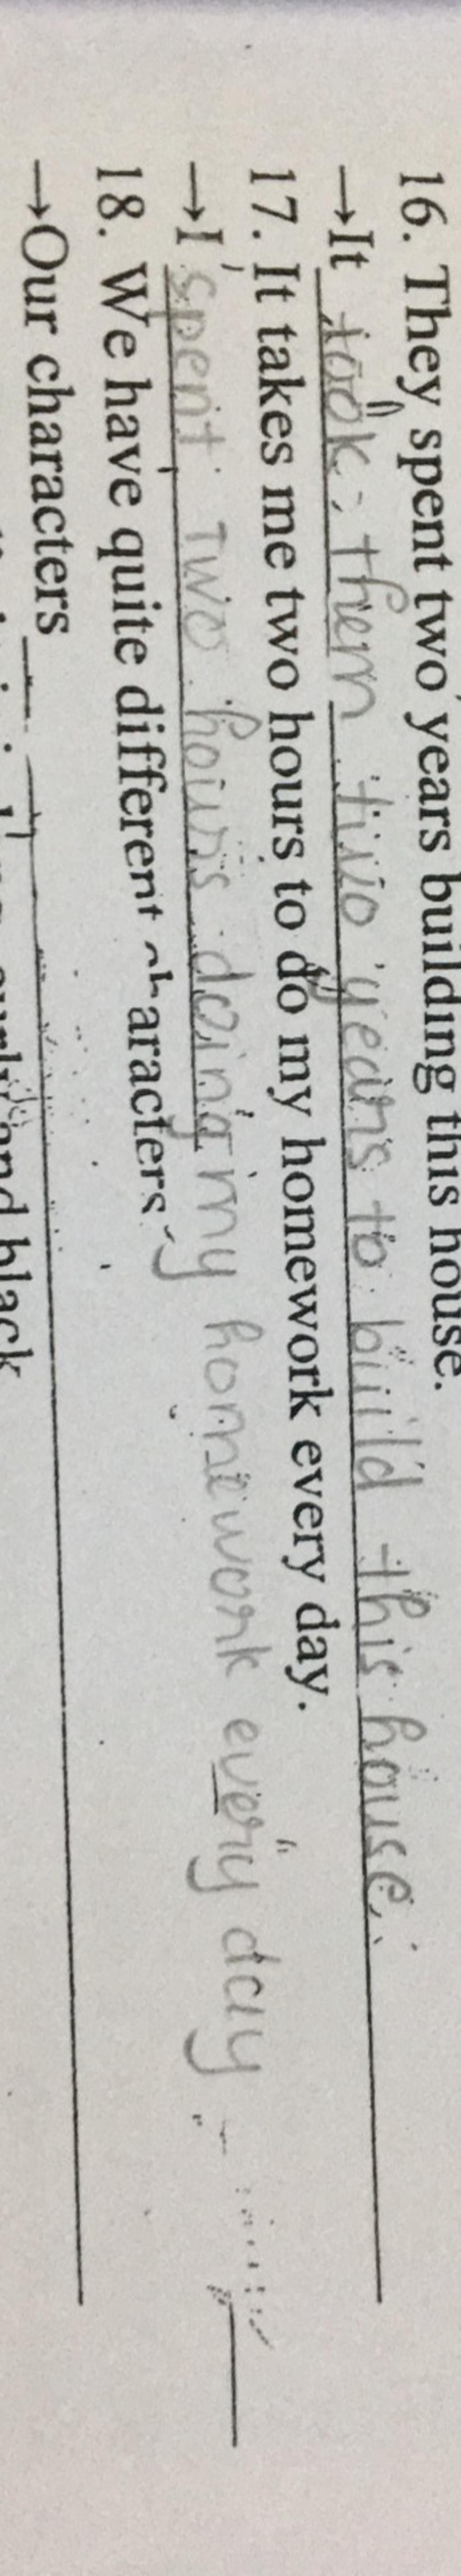 16. They spent two years building this house.
→It took them two years to build this house.
17. It takes me two hours to do my homework every day.
→I spent two hours doing my homework every day.
18. We have quite different characters.
→Our characters
curly and black